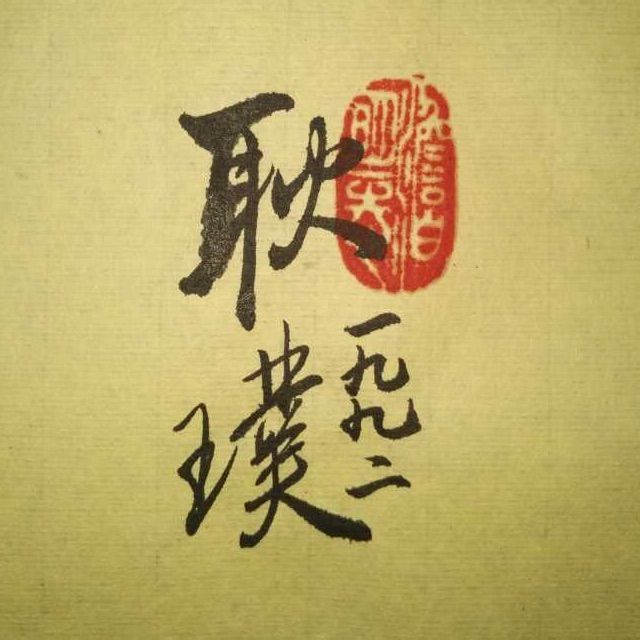 耿
璞
一九九二